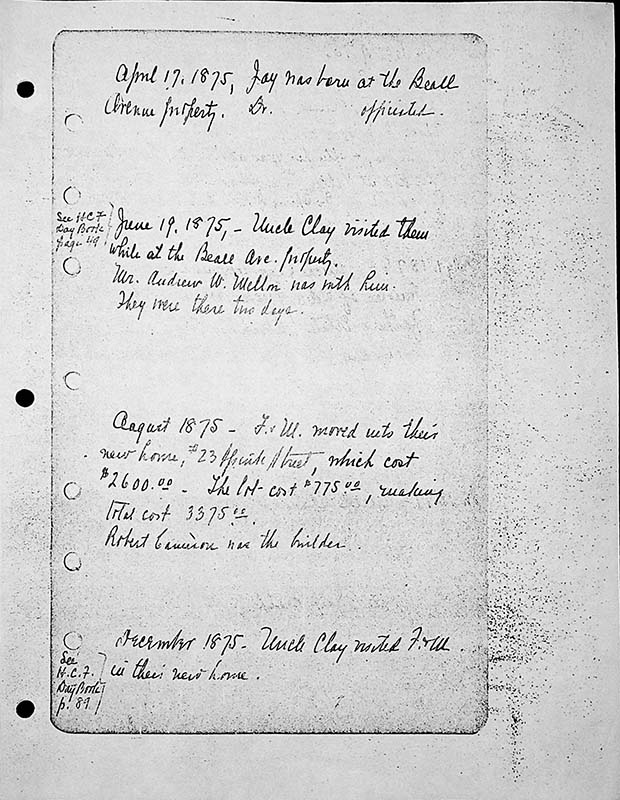 April 17. 1875, Jay was born at the Beall
Avenue property. Dr. officiated.
See H.C.F
Day Book
page 49
June 19. 1875, - Uncle Clay visited them
while at the Beall Ave. property.
Mr. Andrew W. Mellon was with him.
They were there two days.
August 1875 - F. & M. moved into their
new home, #23 Street, which cost
$2600.00 - The lot cost $775.00, making
total cost 3375.00.
Robert Cameron was the builder.
See
H.C.F.
Day Book
p. 89
December 1875 - Uncle Clay visited F. & M.
in their new home.